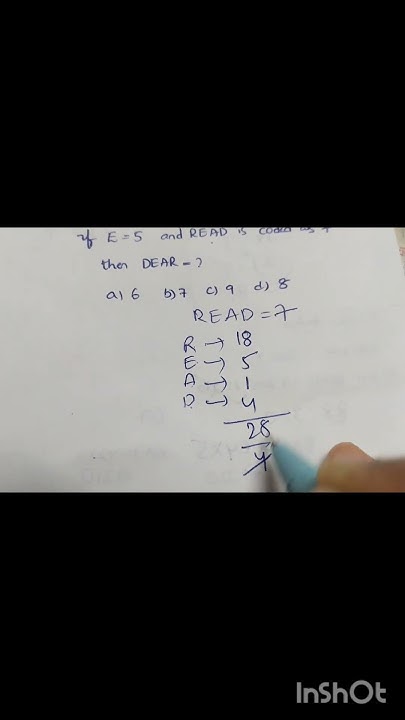 If E=5 and READ is coded as 7
then DEAR = ?
a) 6 b) 7 c) 9 d) 8
READ = 7
R → 18
E → 5
A → 1
D → 4
28
4
InShOt